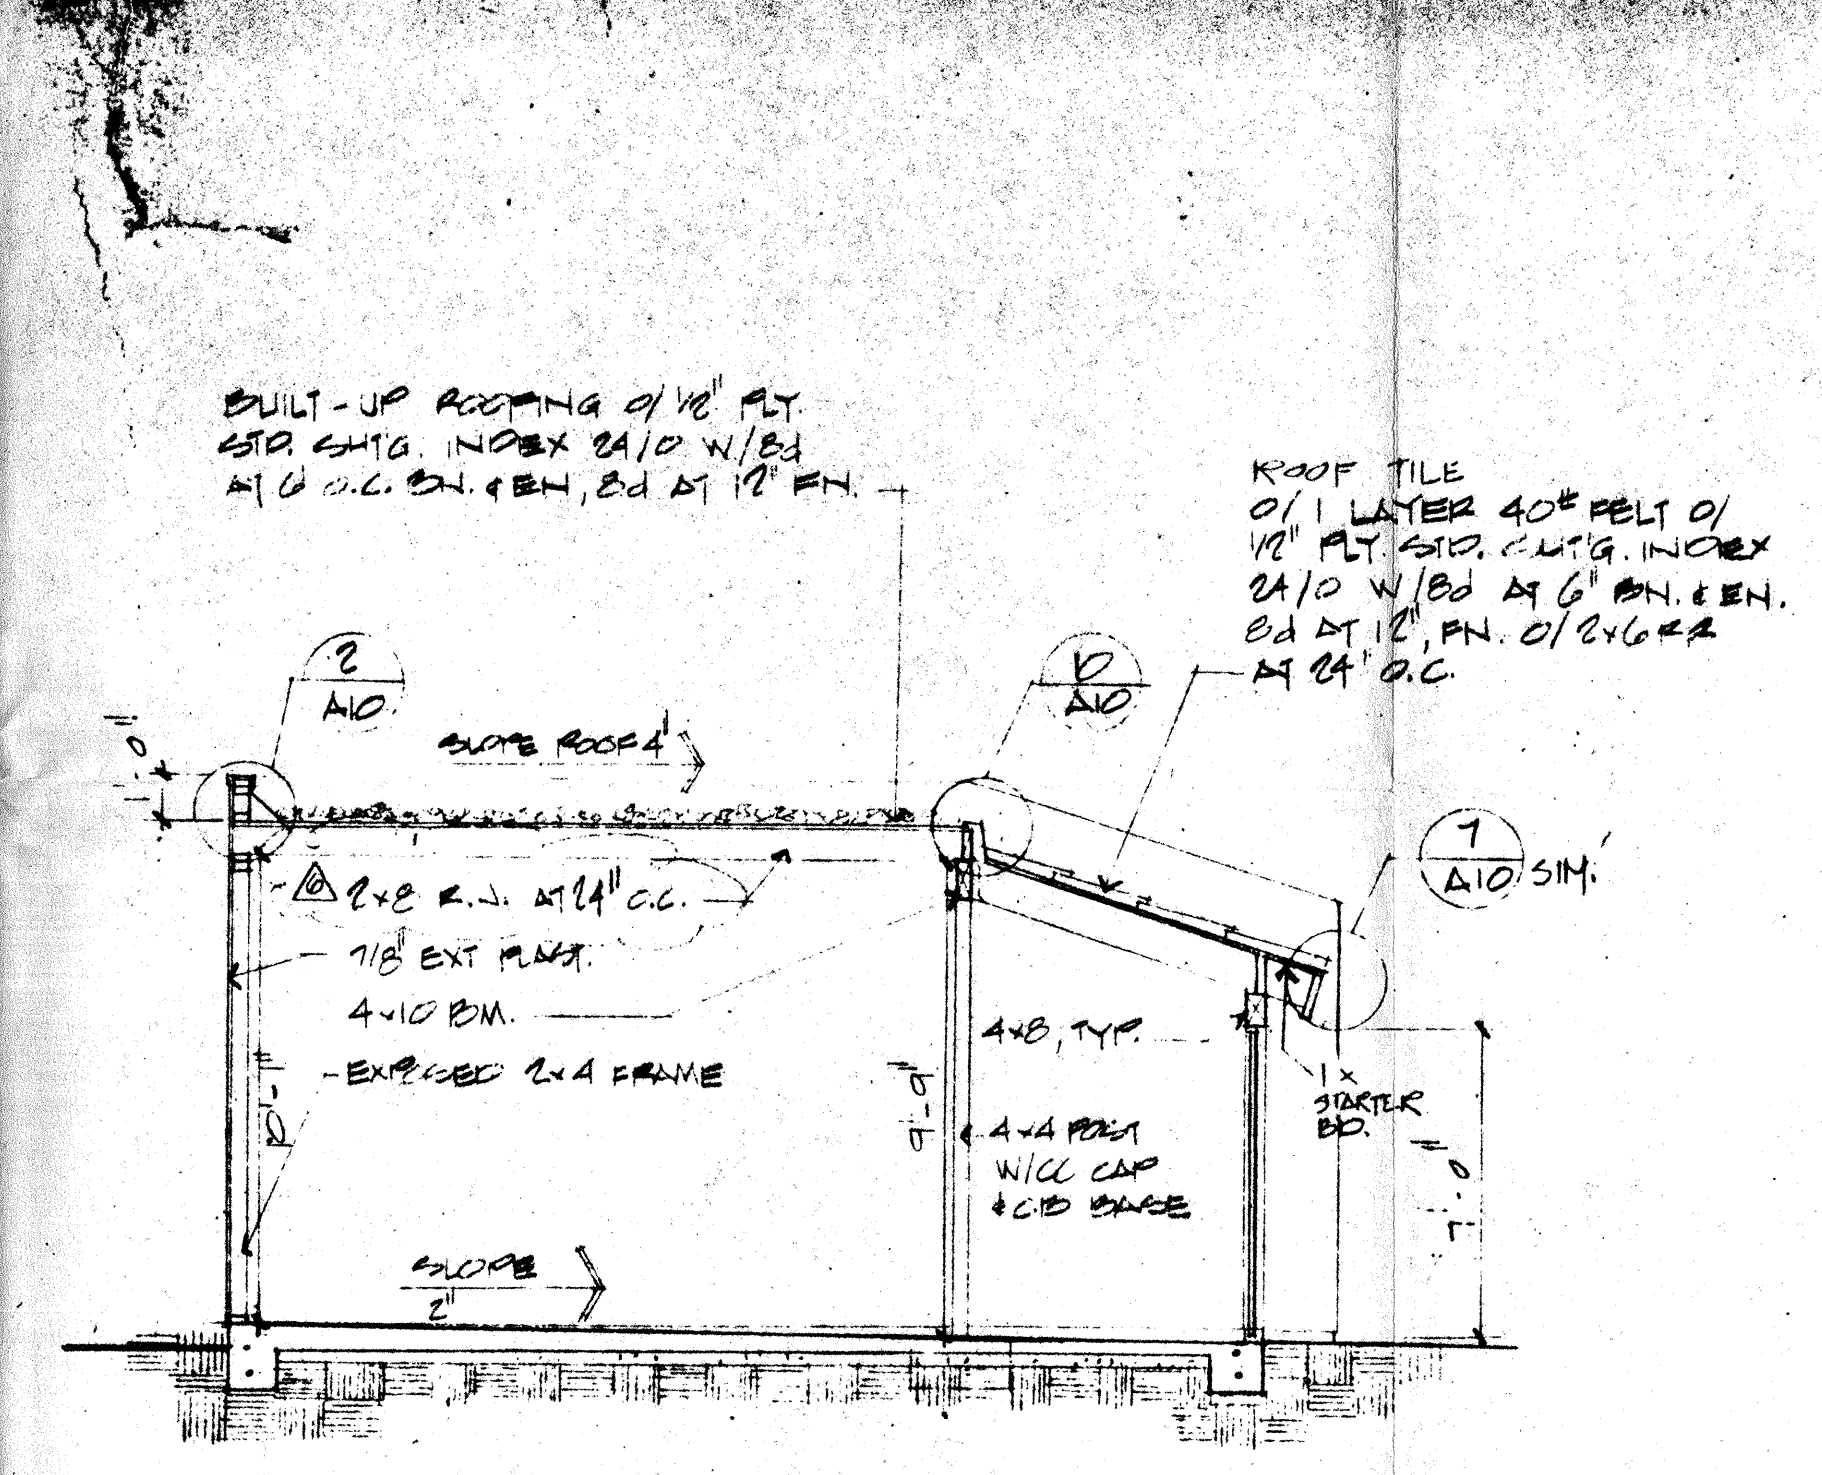 BUILT-UP ROOFING O/ 1/2" PLY.
STD. SHTG. INDEX 24/0 W/8d
AT 6 O.C. BN. & EN, 8d AT 12" FN.
ROOF TILE
O/ 1 LAYER 40# FELT O/
1/2" PLY. STD. SHTG. INDEX
24/0 W/8d AT 6" BN. & EN.
8d AT 12", FN. O/ 2x6 RR
AT 24" O.C.
2
A10
10
A10
SLOPE ROOF 4"
1'-0"
7
A10 SIM.
6
2x8 R.J. AT 24" O.C.
7/8" EXT PLAST.
4x10 BM.
EXPOSED 2x4 FRAME
10'-1"
9'-9"
4x8, TYP.
1x
STARTER
BD.
4x4 POST
W/CC CAP
& CB BASE
7'-0"
SLOPE
2"